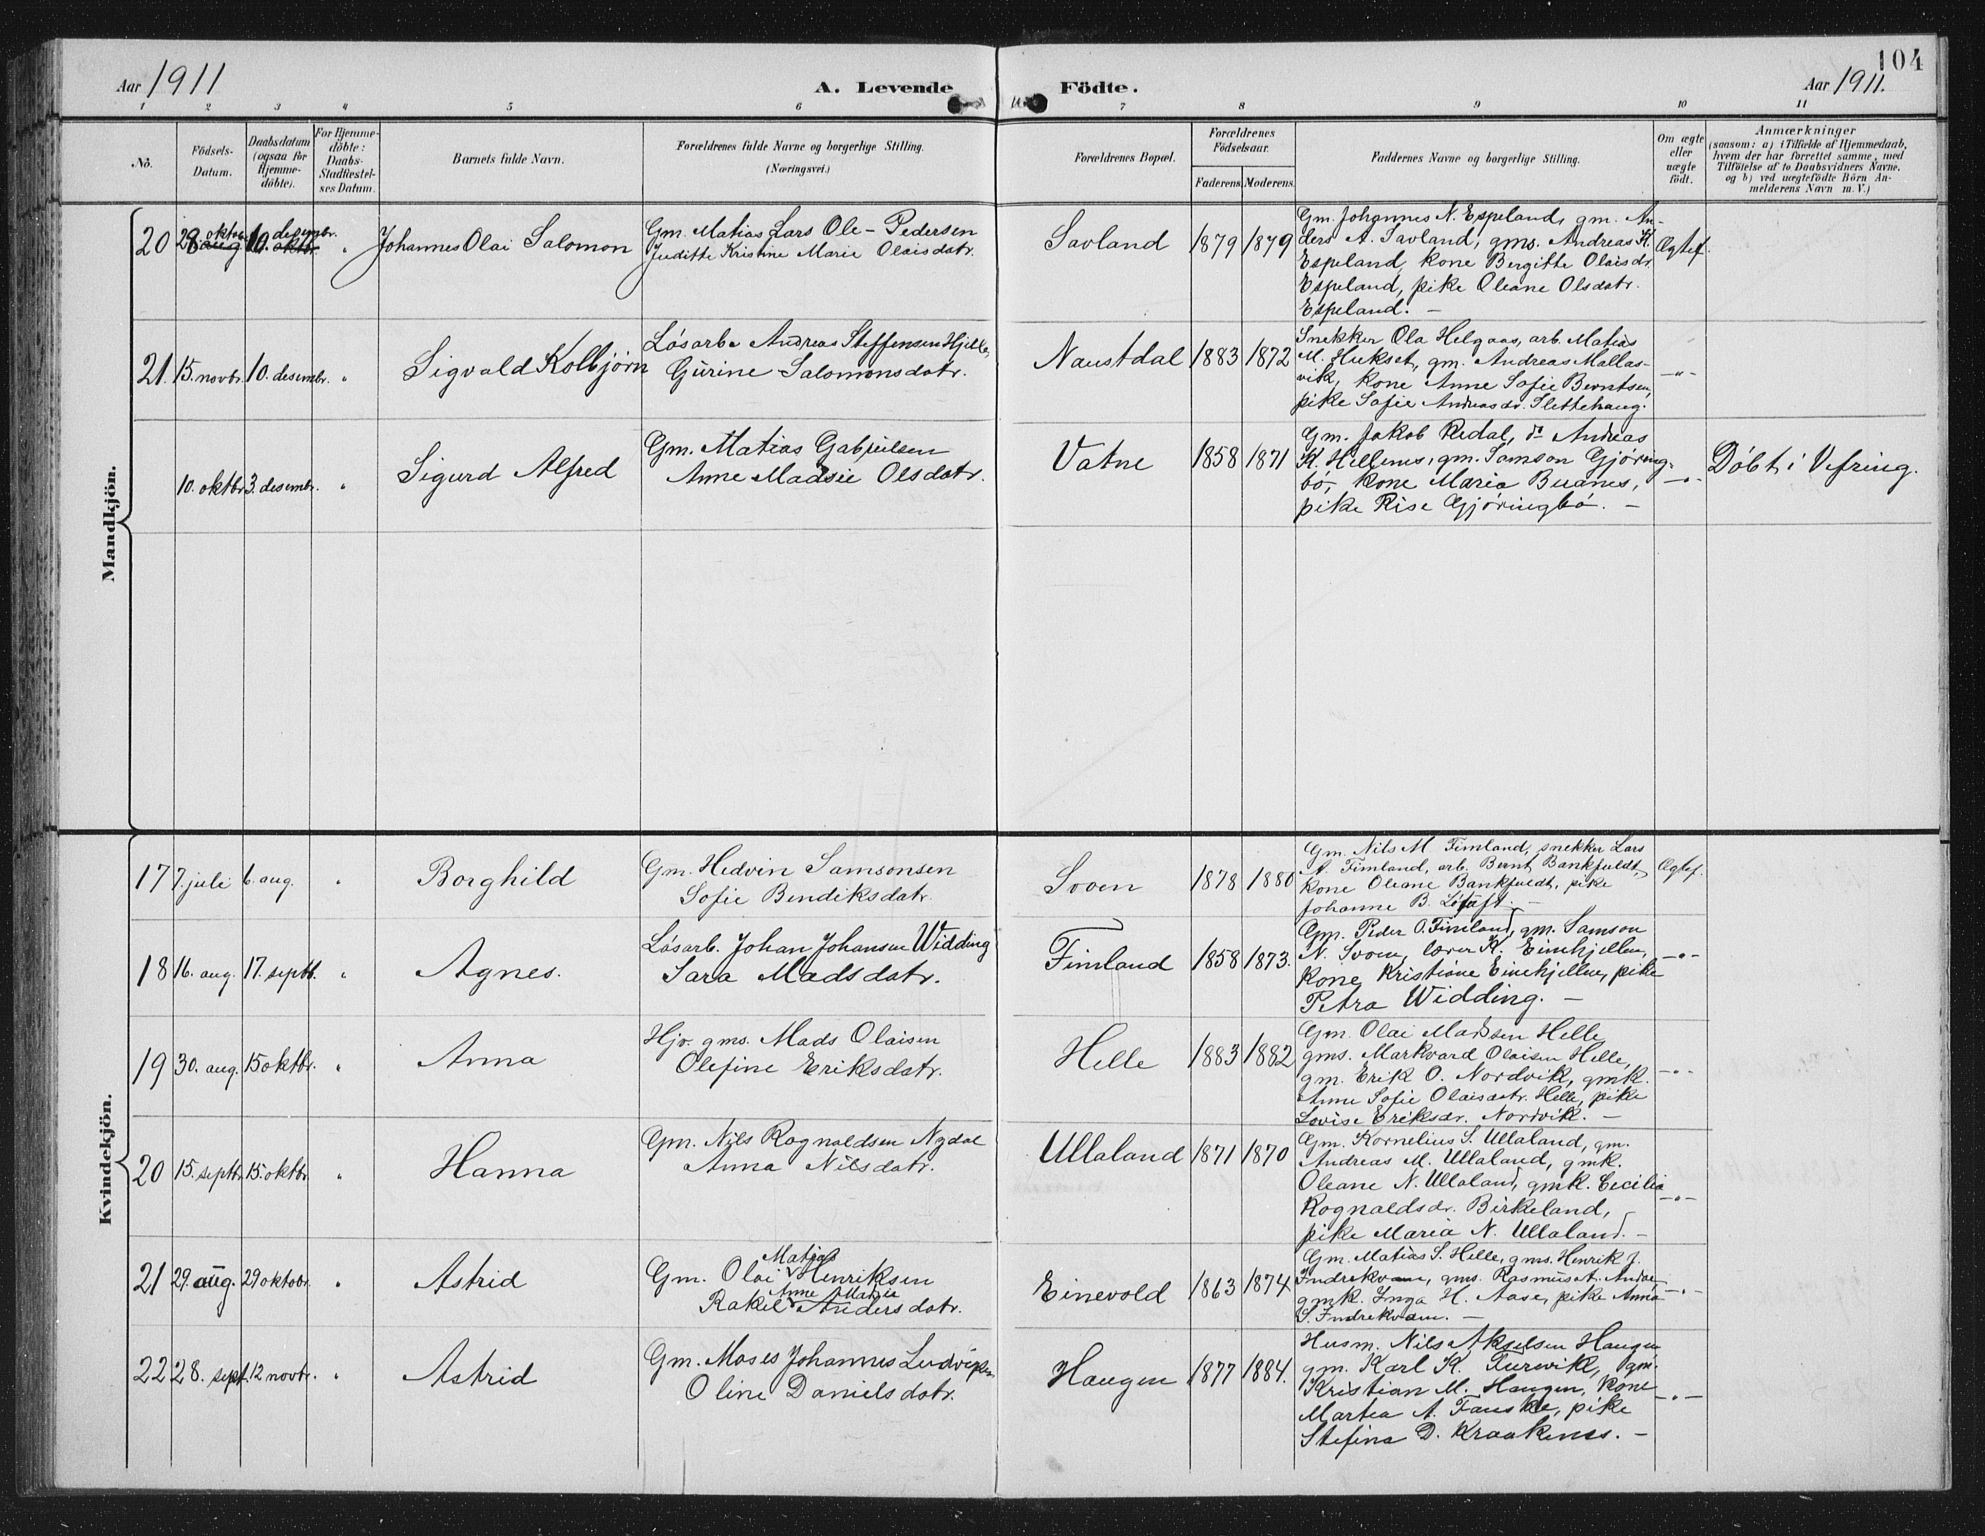 104
Aar 1911
A. Levende Födte.
Aar 1911.
1 2 3 4 5 6 7 8 9 10 11
Nô.
Födsels-
Datum.
Daabsdatum
(ogsaa for
Hjemme-
döbte).
For Hjemme-
döbte:
Daabs-
Stadfæstel-
ses Datum.
Barnets fulde Navn.
Forældrenes fulde Navne og borgerlige Stilling.
(Næringsvei.)
Forældrenes Bopæl.
Forældrenes
Födselsaar.
Faderens. Moderens.
Faddernes Navne og borgerlige Stilling.
Om ægte
eller
uægte
födt.
Anmærkninger
(saasom: a) i Tilfælde af Hjemmedaab,
hvem der har forrettet samme, med
Tilföielse af to Daabsvidners Navne.
og b) ved uægtefödte Börn An-
melderens Navn m. V.)
Mandkjön.
20 28 aug oktbr. 10. oktbr. desembr. "
Johannes Olai Salomon
Gm. Matias Lars Ole-Pedersen
Juditte Kristine Marie Olaisdatr.
Savland 1879 1879
Gm. Johannes N. Espeland, gm. An-
ders A. Savland, gms. Andreas K.
Espeland, kone Bergitte Olaisdr.
Espeland, pike Oleane Olsdatr.
Espeland. –
Ægtef.
21. 15. novbr. 10. desembr. "
Sigvald Kolbjørn
Løsarb. Andreas Steffensen Hjelle,
Gurine Salomonsdatr.
Naustdal 1883 1872
Snekker Ola Helgaas, arb. Matias
M. Hukset, gm. Andreas Mallas-
vik, kone Anne Sofie Berntsen,
pike Sofie Andreasdr. Slettehaug.
–"–
10. oktbr. 3. desembr. "
Sigurd Alfred
Gm. Matias Gabrielsen
Anne Madsie Olsdatr.
Vatne 1858 1871
Gm. Jakob Redal, do Andreas
K. Hellenes, gm. Samson Gjøring-
bø, kone Maria Buanes,
pike Rise Gjøringbø. –
–"–
Døbt i Vefring.
Kvindekjön.
17 7. juli 6. aug. "
Borghild
Gm. Hedvin Samsonsen
Sofie Bendiksdatr.
Svoen 1878 1880
Gm. Nils M Fimland, snekker Lars
A. Fimland, arb. Bernt Bankfuldt,
kone Oleane Bankfuldt, pike
Johanne B. –
Ægtef.
18 16. aug. 17. septb. "
Agnes.
Løsarb. Johan Johansen Widding
Sara Madsdatr.
Fimland 1858 1873.
Gm. Peder O. Fimland, gm. Samson
N. Svoen, lærer K. Eimhjellen,
kone Kristiane Eimhjellen, pike
Petra Widding. –
–"–
19 30. aug. 15 oktbr. "
Anna
Hjv. gms. Mads Olaisen
Olefine Eriksdatr.
Helle 1883 1882
Gm. Olai Madsen Helle
gms. Markvard Olaisen Helle,
gm. Erik O. Nordvik, gmk.
Anne Sofie Olaisdatr. Helle, pike
Lovise Eriksdr. Nordvik. –
–"–
20 15. septbr. 15. oktbr. "
Hanna
Gm. Nils Rognaldsen Nydal
Anna Nilsdatr.
Ullaland 1871 1870
Gm. Kornelius S. Ullaland, gm.
Andreas M. Ullaland, gmk.
Oleane N. Ullaland, gmk. Cecilia
Rognaldsdr. Birkeland,
pike Maria N. Ullaland. –
–"–
21 29. aug. 29 oktobr. "
Astrid
Gm. Olai Matias Henriksen
Rakel Anne Matia Andersdatr.
Einevold 1863 1874
Gm. Matias S. Helle, gms. Henrik J.
Indrekvam, gms. Rasmus A.
gmk. Inga H. Aase, pike Anna
S. Indrekvam. –
–"–
22 28. sept. 12 novbr. "
Astrid
Gm. Moses Johannes Ludvigsen
Oline Danielsdatr.
Haugen 1877 1884.
Husm. Nils Akselsen Haugen
gm. Karl K. Furevik, gm.
Kristian M. Haugen, kone
Martea A. Fauske, pike
Stefina D. Kraakenes. –
–"–